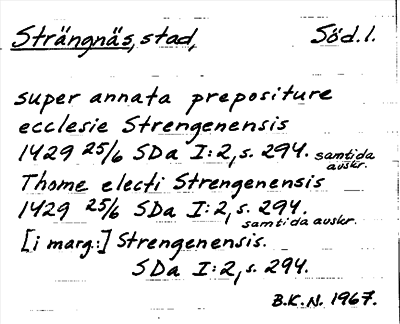 Strängnäs, stad, Söd.l.
super annata prepositure
ecclesie Strengenensis
1429 25/6 SDa I:2, s. 294. samtida avskr.
Thome electi Strengenensis
1429 25/6 SDa I:2, s. 294. samtida avskr.
[i marg:] Strengenensis.
SDa I:2, s. 294.
B.K.N. 1967.